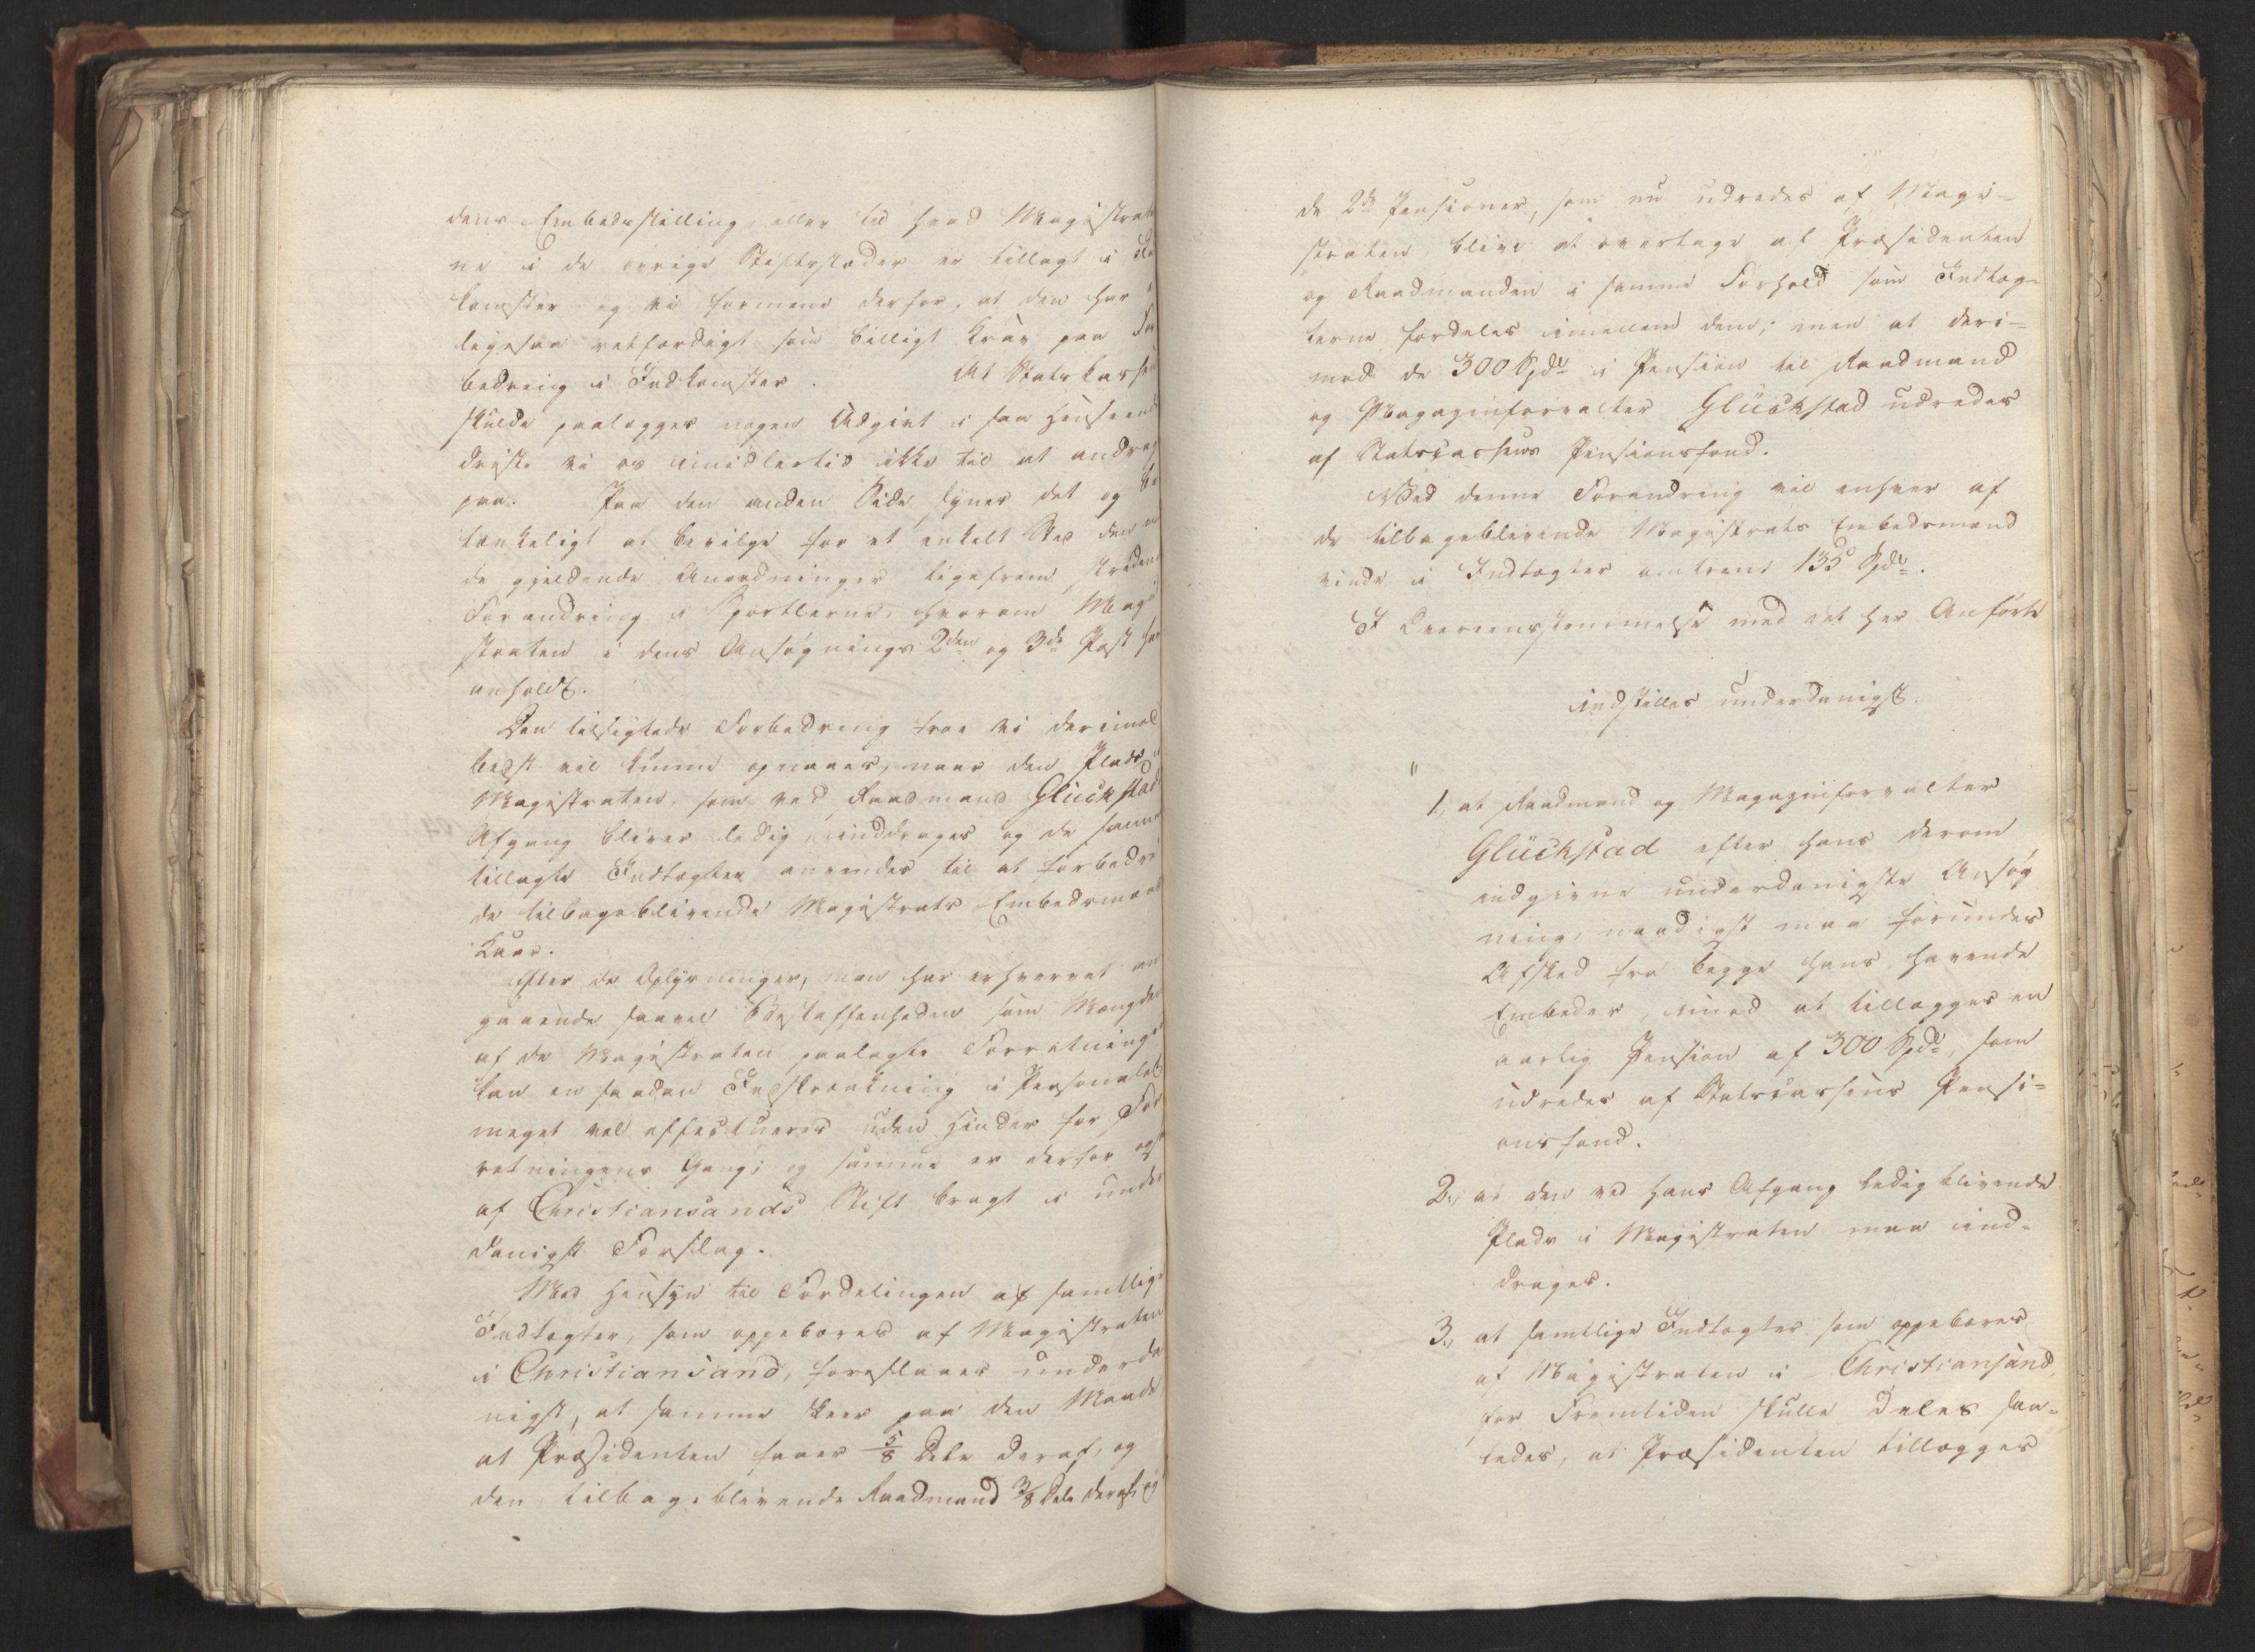 dens Embedsstilling, eller til hvad Magistrater
ne i de øvrige Stiftsstæder er tillagt i
komster og vi formene derfor, at den har
ligesaa retfærdigt som billigt Krav paa For
bedring i Indkomster. At Statskassen
skulde paalægges nogen Udgivt i saa Henseende
driste vi os imidlertid ikke til at andrage
paa. Paa den anden Side synes det og be
tænkeligt at bevilge for et enkelt Sted den
de gjeldende Anordninger ligefrem stridende
Forandring i Sportlerne, hvorom Magi
straten i dens Ansøgnings 2den og 3de Post har
anholdt.
Den tilsigtede Forbedring troe vi derimod
bedst vil kunne opnaaes, naar den Plads i
Magistraten, som ved Raadmand Glückstads
Afgang bliver ledig, inddrages og de samme
tillagte Indtægter anvendes til at forbedre
de tilbageblivende Magistrats Embedsmænds
Kaar.
Efter de Oplysninger, man har erhvervet an
gaaende saavel Beskaffenheden som Mængden
af de Magistraten paalagte Forretninger
kan en saadan Indskrænkning i Personalet
meget vel effectueres uden Hinder for For
retningens Gang; og samme er derfor og
af Christiansands Stift bragt i under
danigst Forslag.
Med Hensyn til Fordelingen af samtlige
Indtægter, som oppebæres af Magistraten
i Christiansand, foreslaaes underda
nigst, at samme skeer paa den Maade
at Præsidenten faaer 5/8 Dele deraf, og
den tilbageblivende Raadmand 3/8 Dele deraf, og
de 2de Pensioner, som nu udredes af Magi-
straten, blive at overtage af Præsidenten
og Raadmanden i samme Forhold som Indtæg-
terne fordeles imellem dem; men at deri-
mod de 300 Spd i Pension til Raadmand
og Magazinforvalter Glückstad udredes
af Statscassens Pensionsfond.
Ved denne Forandring vil enhver af
de tilbageblivende Magistrats Embedsmænd
vinde i Indtægter omtrent 135 Spd.
I Overensstemmelse med det her Anførte
indstilles underdanigst:
"
1, at Raadmand og Magazinforvalter
Glückstad efter hans derom
indgivne underdanigste Ansøg
ning, naadigst maa forundes
Afsked fra begge hans havende
Embeder, imod at tillægges en
aarlig Pension af 300 Spd, som
udredes af Statscassens Pensi-
onsfond.
2, at den ved hans Afgang ledigblivende
Plads i Magistraten maa ind-
drages.
3, at samtlige Indtægter som oppebæres
af Magistraten i Christiansand,
for Fremtiden skulle deles saa-
ledes, at Præsidenten tillægges